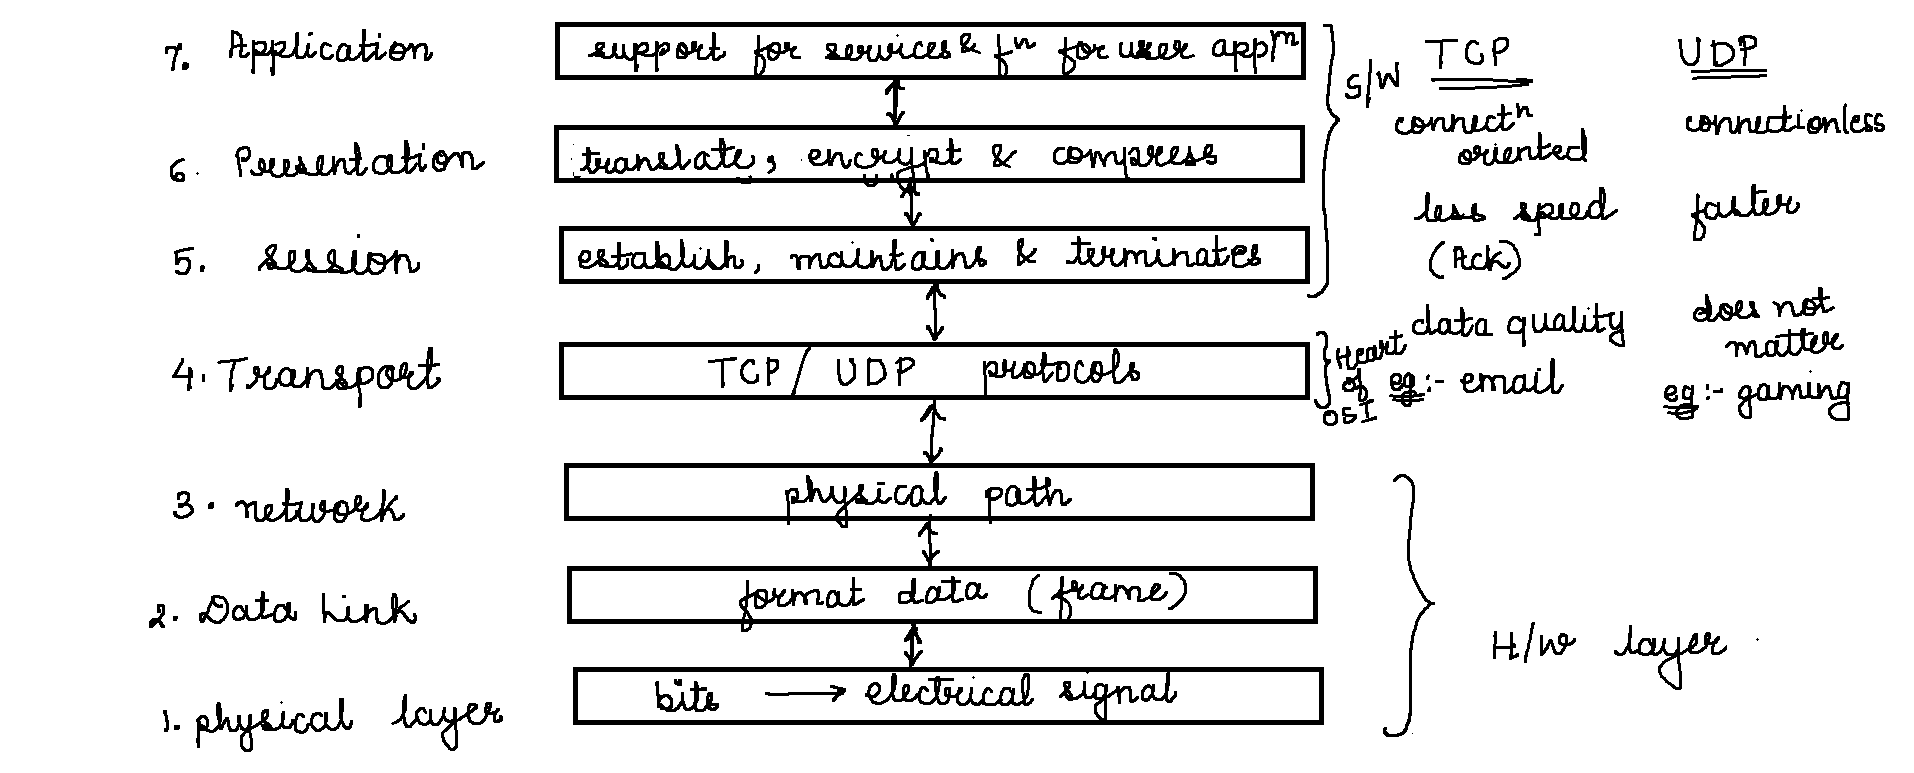 7. Application
support for services & fⁿ for user appⁿ
6. Presentation
translate, encrypt & compress
5. session
establish, maintains & terminates
4. Transport
TCP / UDP protocols
3. network
physical path
2. Data Link
format data (frame)
1. physical layer
bits → electrical signal
S/W
Heart
of
OSI
H/W layer
TCP
connectⁿ
oriented
less speed
(Ack)
data quality
eg:- email
UDP
connectionless
faster
does not
matter
eg:- gaming